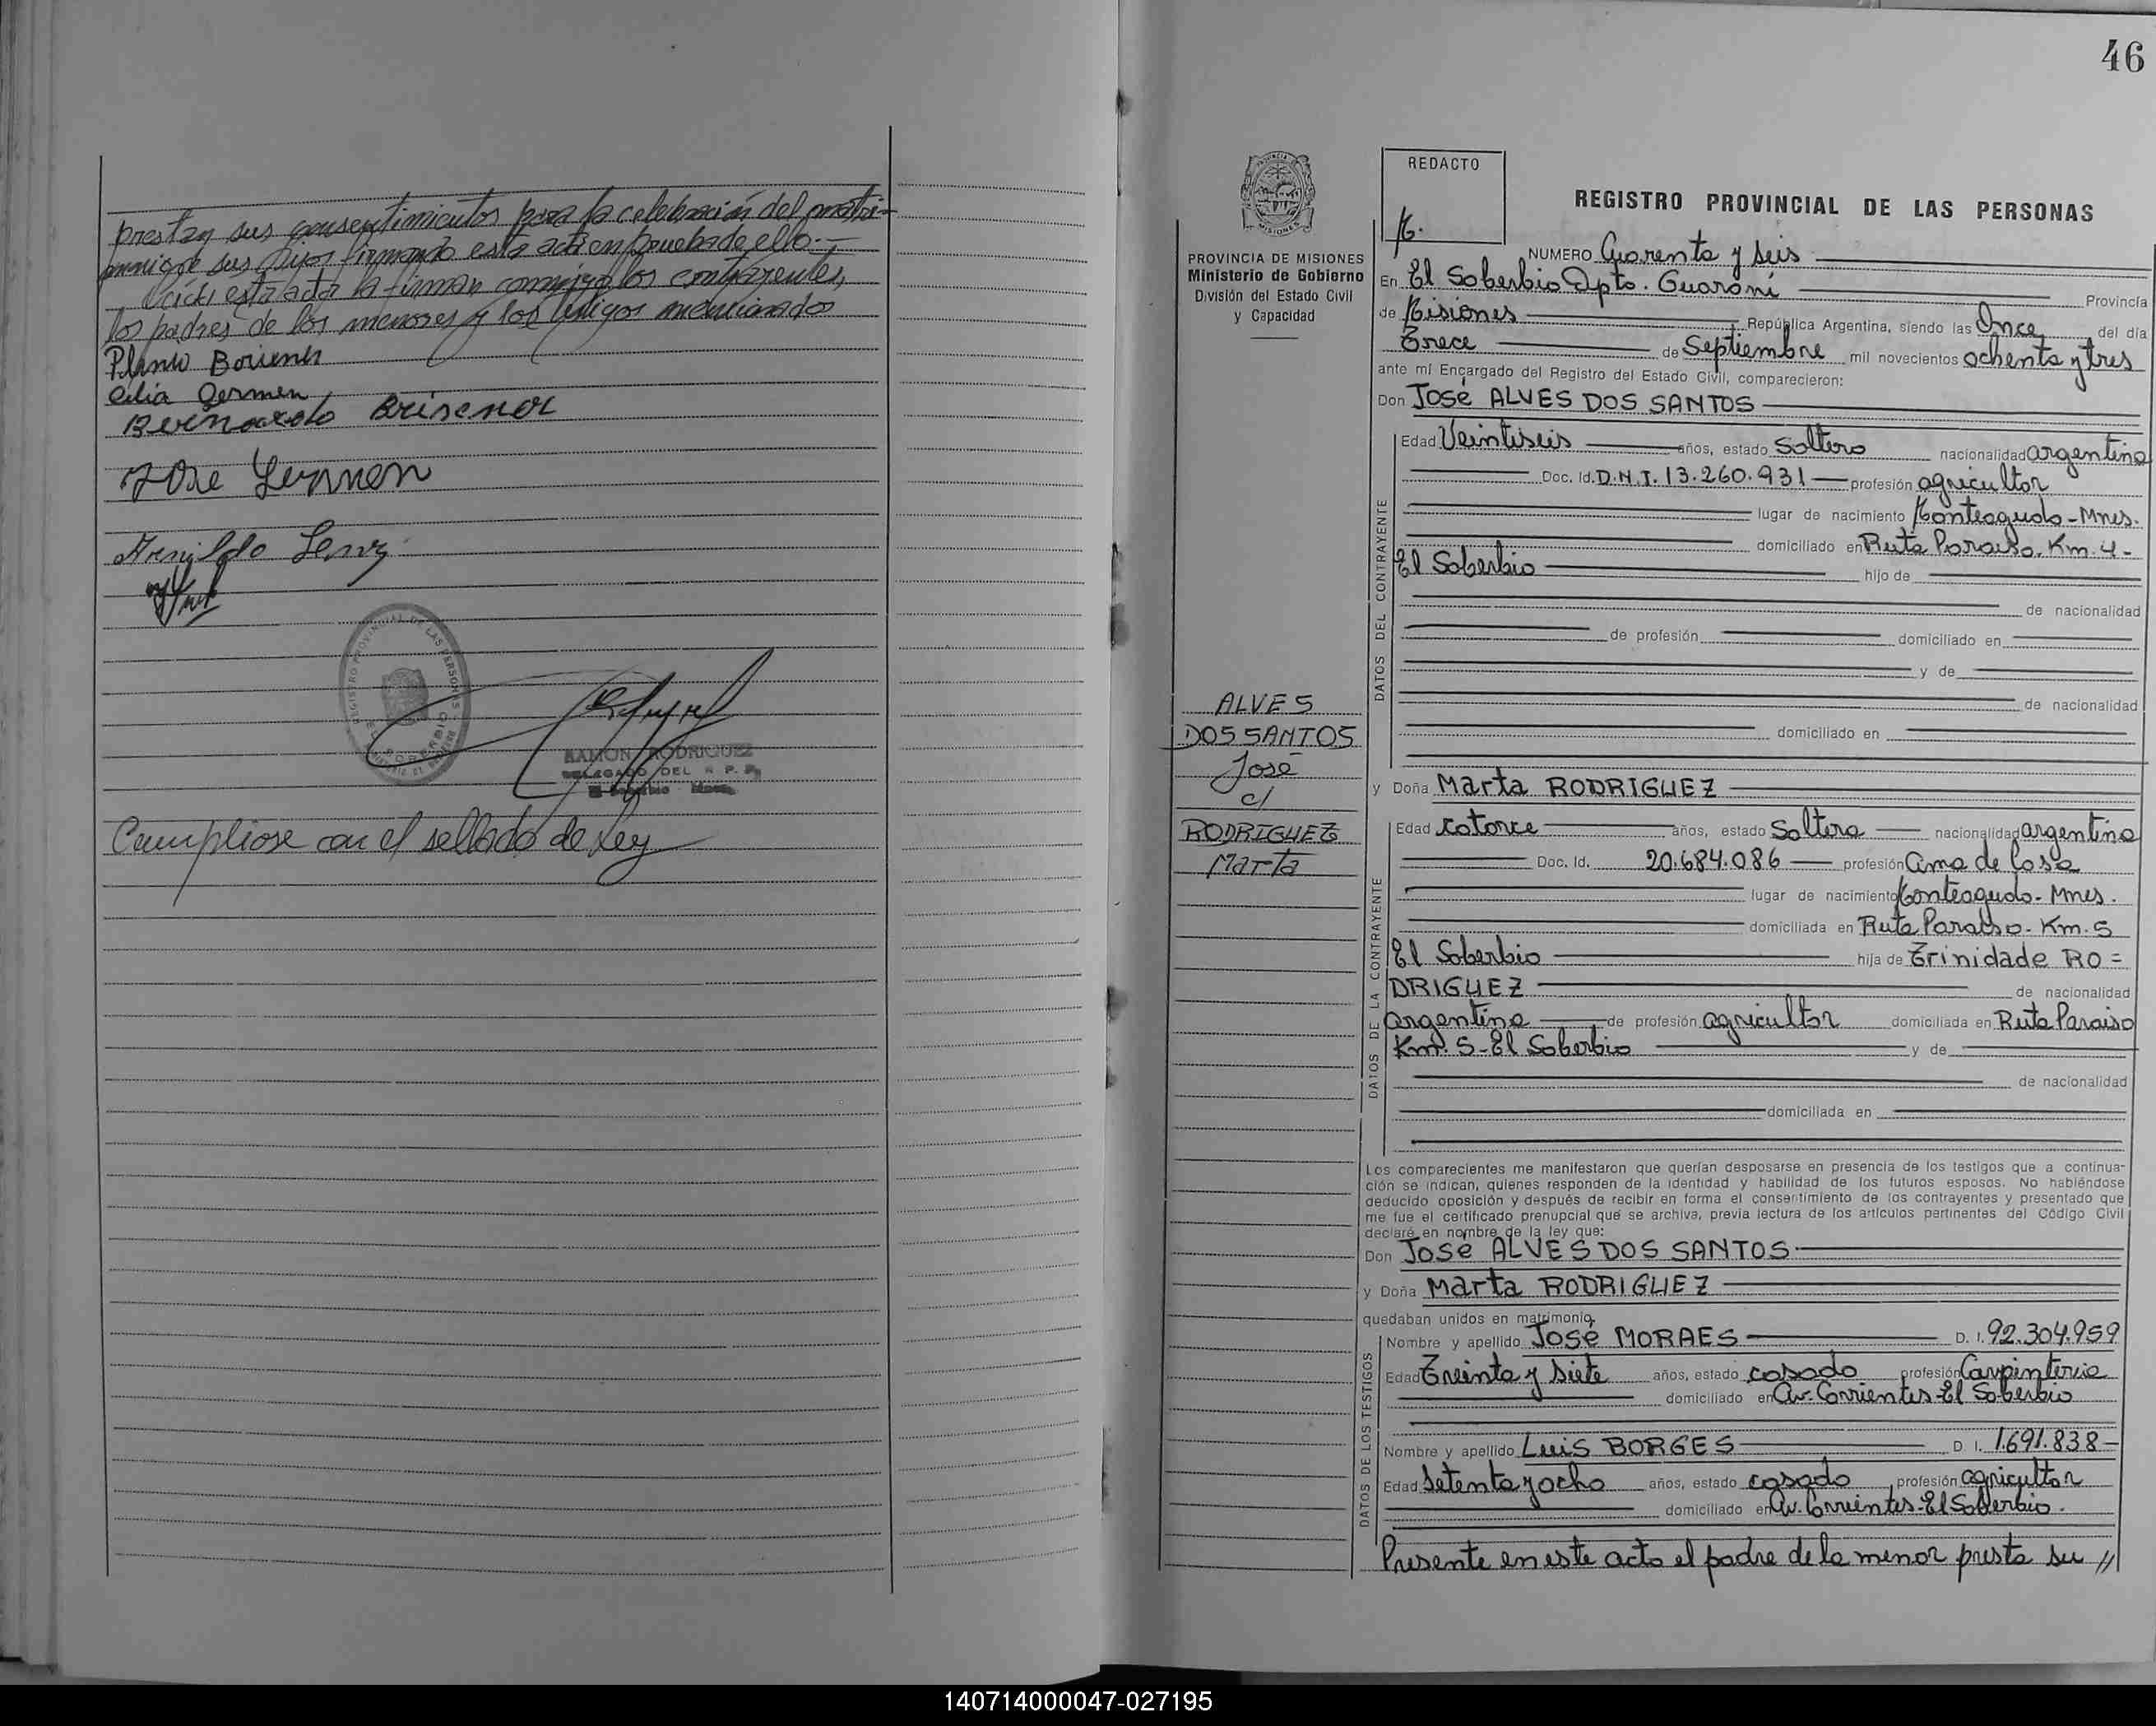 prestan sus consentimientos para la celebración del matri-
monio de sus hijos firmando esta acta en prueba de ello.-
Leída esta acta la firman conmigo los contrayentes,
los padres de los menores y los testigos mencionados
José
RAMON RODRIGUEZ
DELEGADO DEL R. P. P.
Cumpliose con el sellado de Ley
46
REDACTO
REGISTRO PROVINCIAL DE LAS PERSONAS
PROVINCIA DE MISIONES
Ministerio de Gobierno
División del Estado Civil
y Capacidad
NUMERO Cuarenta y seis
En El Soberbio Dpto. Guaraní Provincia
de Misiones República Argentina, siendo las Once del día
Trece de Septiembre mil novecientos ochenta y tres
ante mí Encargado del Registro del Estado Civil, comparecieron:
Don José ALVES DOS SANTOS
DATOS DEL CONTRAYENTE
Edad Veintiseis años, estado Soltero nacionalidad argentina
Doc. Id. D.N.I. 13.260.931 profesión agricultor
lugar de nacimiento Monteagudo-Mnes.
domiciliado en Ruta Paraiso. Km. 4-
El Soberbio hijo de
de nacionalidad
de profesión domiciliado en
y de
de nacionalidad
domiciliado en
ALVES
DOS SANTOS
José
c/
RODRIGUEZ
Marta
y Doña Marta RODRIGUEZ
DATOS DE LA CONTRAYENTE
Edad catorce años, estado Soltera nacionalidad argentina
Doc. Id. 20.684.086 profesión ama de Casa
lugar de nacimiento Monteagudo-Mnes.
domiciliada en Ruta Paraiso-Km. 5
El Soberbio hija de Trinidade RO=
DRIGUEZ de nacionalidad
argentina de profesión agricultor domiciliada en Ruta Paraiso
Km. 5-El Soberbio y de
de nacionalidad
domiciliada en
Los comparecientes me manifestaron que querían desposarse en presencia de los testigos que a continua-
ción se indican, quienes responden de la identidad y habilidad de los futuros esposos. No habiéndose
deducido oposición y después de recibir en forma el consentimiento de los contrayentes y presentado que
me fue el certificado prenupcial que se archiva, previa lectura de los artículos pertinentes del Código Civil
declaré en nombre de la ley que:
Don José ALVES DOS SANTOS
y Doña Marta RODRIGUEZ
quedaban unidos en matrimonio
DATOS DE LOS TESTIGOS
Nombre y apellido José MORAES D. I. 92.304.959
Edad Treinta y siete años, estado casado profesión Carpinteria
domiciliado en Av. Corrientes-El Soberbio
Nombre y apellido Luis BORGES D. I. 1.691.838-
Edad Setenta y ocho años, estado casado profesión agricultor
domiciliado en Av. Corrientes-El Soberbio.
Presente en este acto el padre de la menor presta su //
140714000047-027195